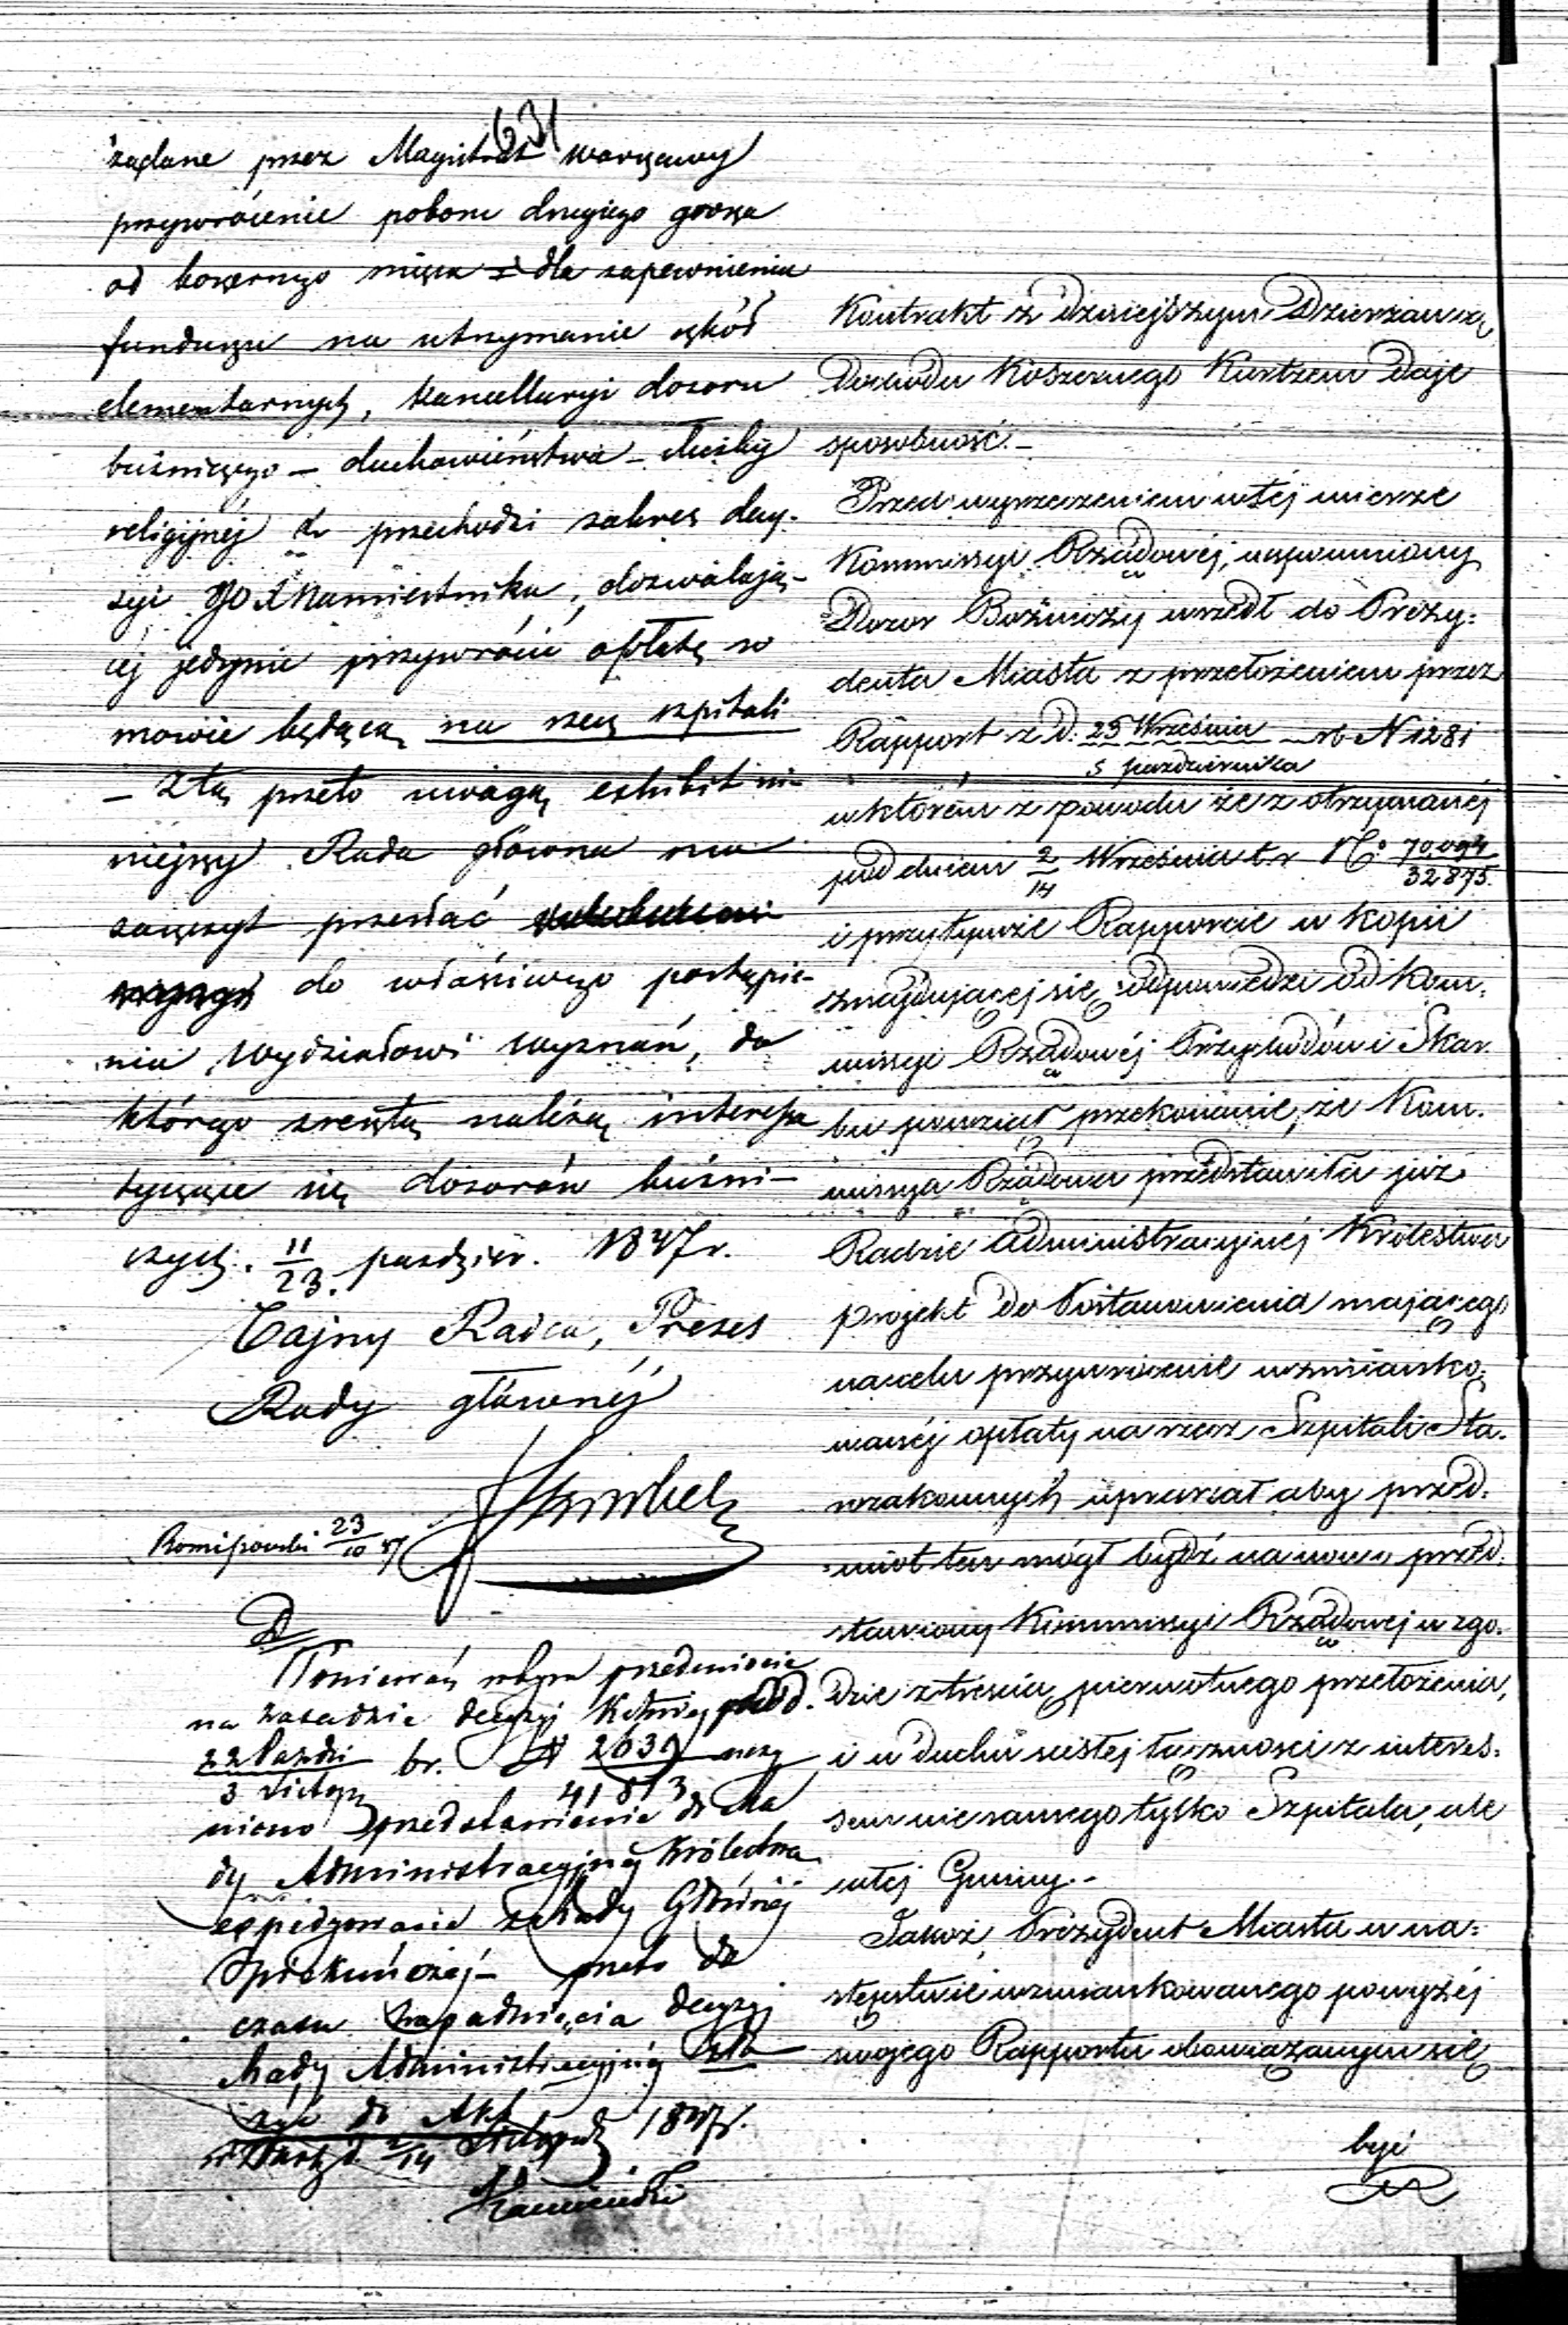 631
żądane przez Magistrat warszawy
przywrócenie poboru drugiego grosza
od koszernego mięsa dla zapewnienia
funduszu na utrzymanie szkół
elementarnych, kancellaryi dozoru
bużniczego – duchowieństwa – służby
religijnéj przechodzi zakres decy-
zyi JO X Namiestnika, dozwalają-
céj jedynie przywrócić opłatę w
mowie będącą na rzecz szpitali
– Z tą przeto uwagą exhibit ni-
niejszy Rada główna ma
zaszczyt przesłać
do właściwego postąpie-
nia Wydziałowi wyznań, do
którego zresztą należą interessa
tyczące się dozorów bużni-
czych. 11/23 paździer. 1847 r.
Tajny Radca, Prezes
Rady głównéj
23/10 47
Ponieważ w tym przedmiocie
na zasadzie decyzyi
22 Paździ / 3 Listop br. N 2639 / 41813
niono przedstawienie do Ra
dy Administracyjnéj Królestwa
expedyowanie z Rady Głównéj
Opiekuńczéj – przeto do
czasu zapadnięcia decyzyi
Rady Administracyjnéj zło
żyć do Akt
2/14 Listopada 1847 r.
Kontrakt z dzisiejszym Dzierżawcą
Dochodu Koszernego Kurtzem daje
sposobność. –
Przed wyrzeczeniem w téj mierze
Kommissyi Rządowéj, wspomniony
Dozor Bożniczy wszedł do Prezy-
denta Miasta z przełożeniem przez
Rapport z d. 25 Września / 5 października rb N 1281
w którém z powodu że z otrzymanéj
pod dniem 2/14 Września t r No 70,094 / 32875.
i przy tymże Rapporcie w kopii
znajdującej się odpowiedzi od Kom-
missyi Rządowéj Przychodów i Skar-
bu powziął przekonanie, że Kom-
missya Rządowa przedstawiła już
Radzie Administracyjnéj Królestwa
projekt do Postanowienia mającego
na celu przywrócenie wzmianko-
wanéj opłaty na rzecz Szpitali Sta-
rozakonnych, upraszał aby przed-
miot ten mógł bydź na nowo przed-
stawiony Kommissyi Rządowéj w zgo-
dzie z treścią pierwotnego przełożenia,
i w duchu ścisłej łączności z interes-
sem nie samego tylko Szpitala, ale
całej Gminy. –
Jakoż, Prezydent Miasta w na-
stępstwie wzmiankowanego powyżéj
swojego Rapportu obowiązanym się
być